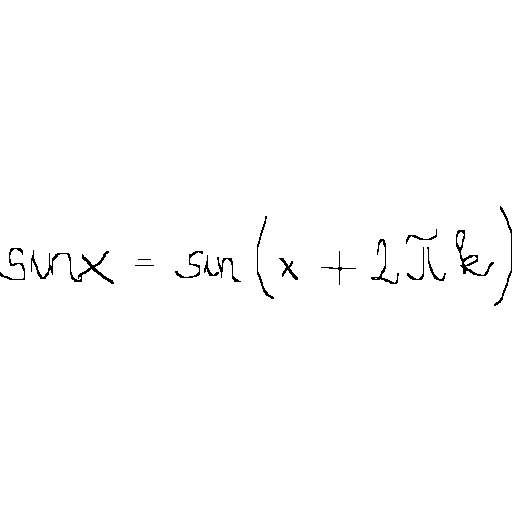 sin x = sin(x + 2πk)